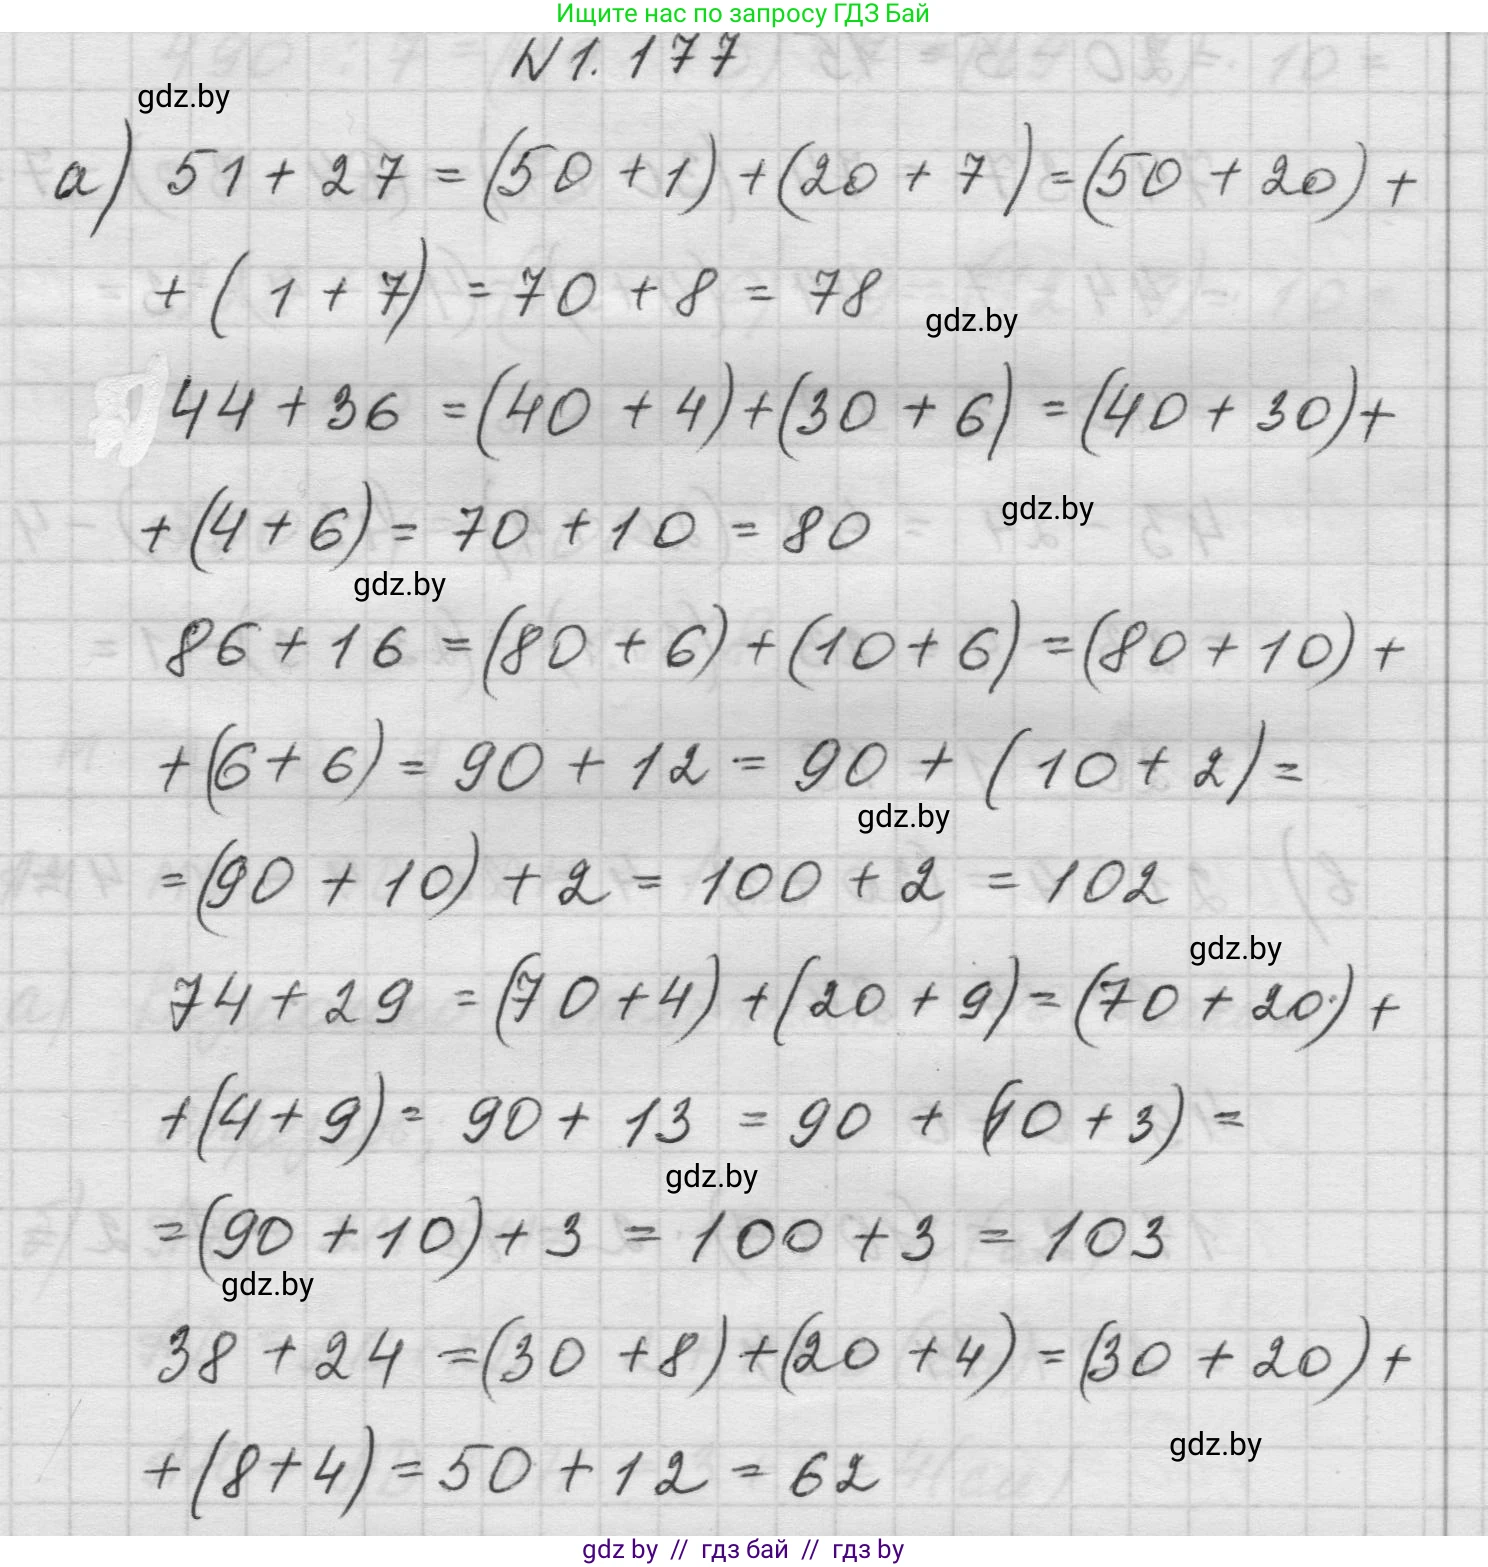 Ищите нас по запросу ГДЗ Бай
N 1. 177
gdz.by
а) 51 + 27 = (50 + 1) + (20 + 7) = (50 + 20) +
+ (1 + 7) = 70 + 8 = 78
gdz.by
44 + 36 = (40 + 4) + (30 + 6) = (40 + 30) +
+ (4 + 6) = 70 + 10 = 80
gdz.by
gdz.by
86 + 16 = (80 + 6) + (10 + 6) = (80 + 10) +
+ (6 + 6) = 90 + 12 = 90 + (10 + 2) =
gdz.by
= (90 + 10) + 2 = 100 + 2 = 102
gdz.by
74 + 29 = (70 + 4) + (20 + 9) = (70 + 20) +
+ (4 + 9) = 90 + 13 = 90 + (10 + 3) =
gdz.by
= (90 + 10) + 3 = 100 + 3 = 103
gdz.by
38 + 24 = (30 + 8) + (20 + 4) = (30 + 20) +
+ (8 + 4) = 50 + 12 = 62
gdz.by
gdz by // гдз бай // гдз by